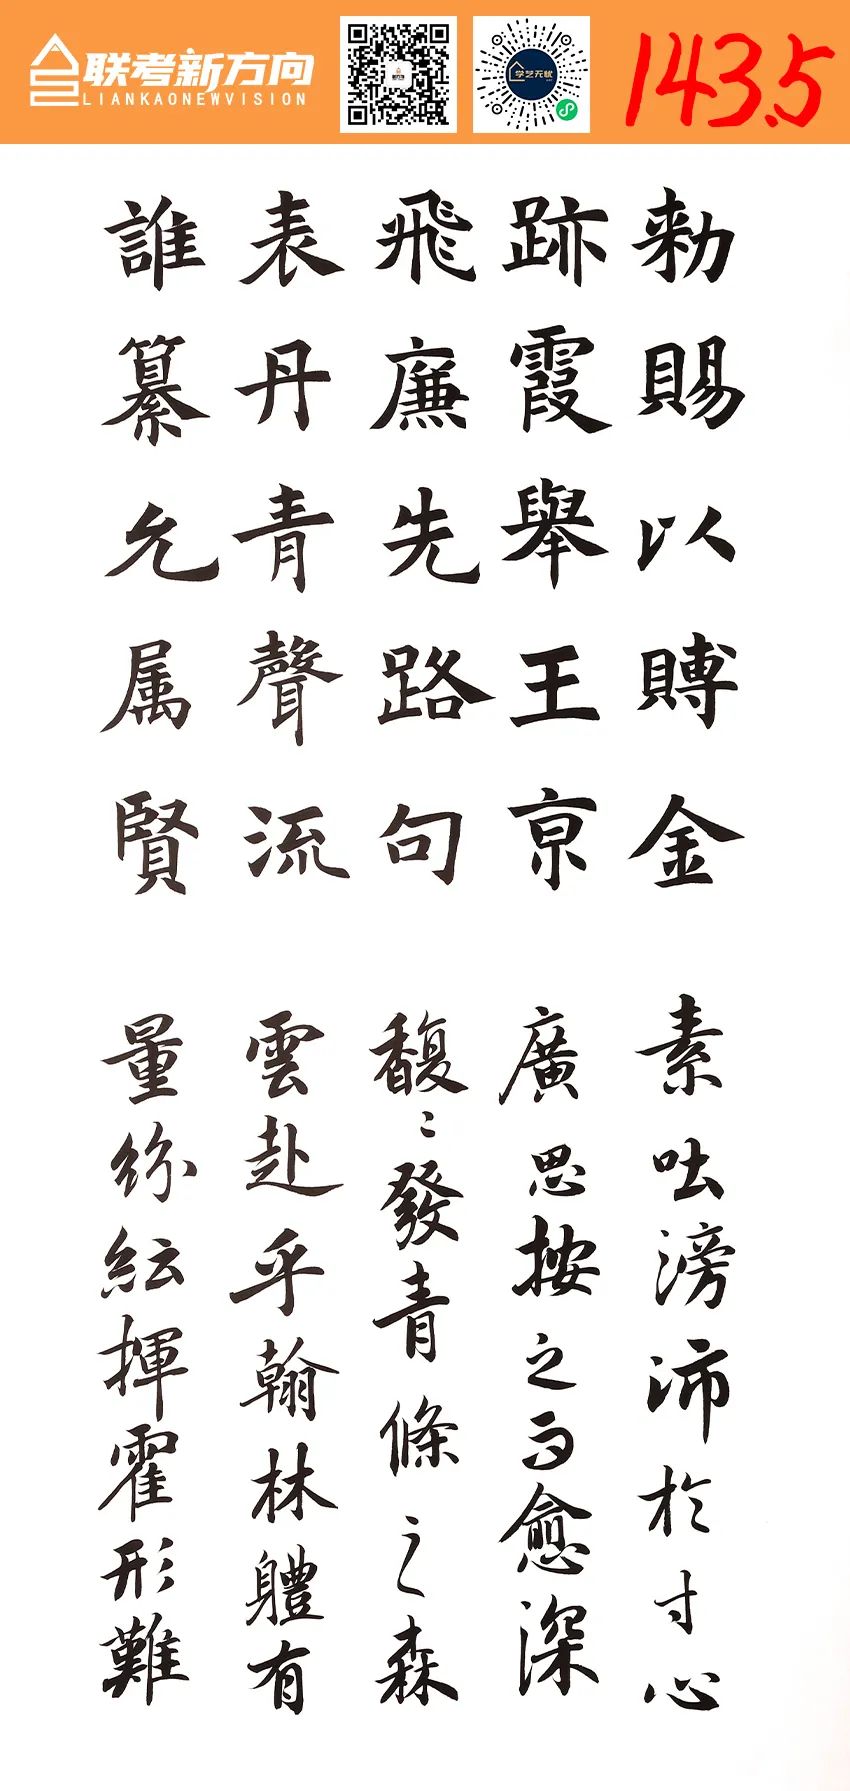 联考新方向
LIANKAONEWVISION
学艺无忧
143.5
勑賜以賻金
跡霞舉王京
飛廉先路句
表丹青聲流
誰纂允属賢
素吐滂沛於寸心
廣思按之而愈深
馥〻發青條之森
雲赴乎翰林體有
量紛紜揮霍形難